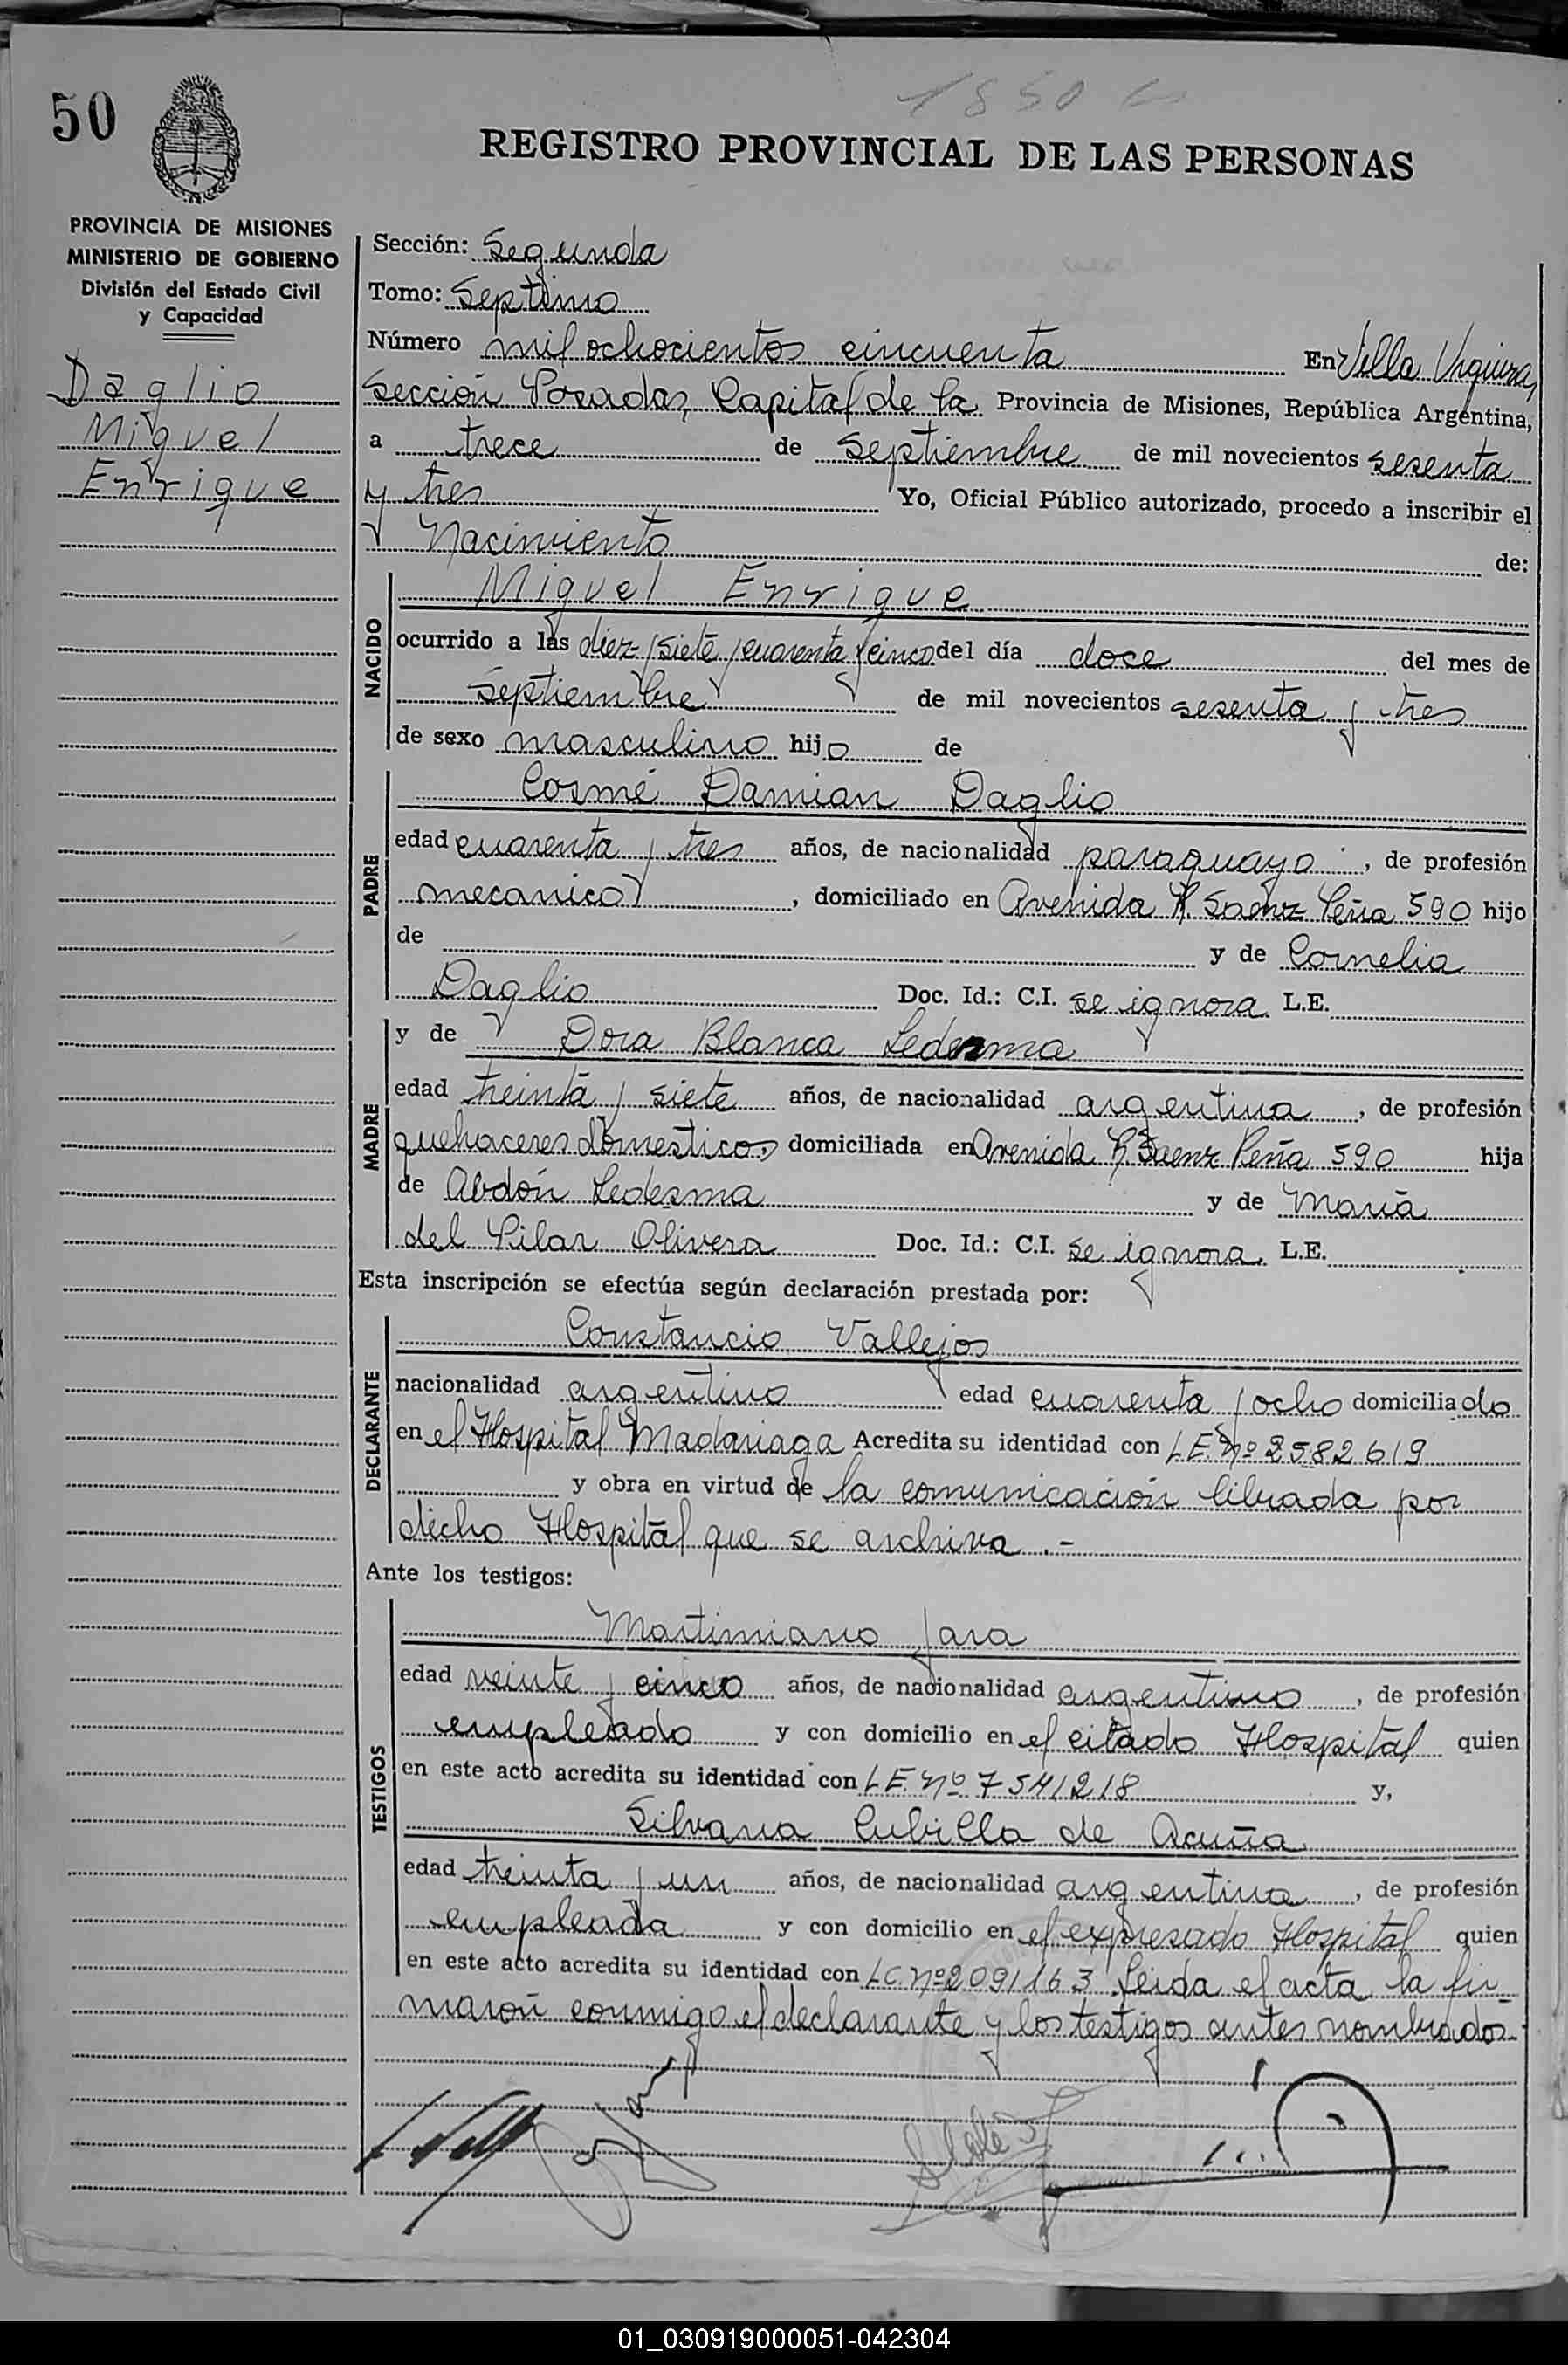 1850
50
REGISTRO PROVINCIAL DE LAS PERSONAS
PROVINCIA DE MISIONES
MINISTERIO DE GOBIERNO
División del Estado Civil
y Capacidad
Daglio
Miguel
Enrique
Sección: Segunda
Tomo: Septimo
Número mil ochocientos cincuenta En Villa Urquiza,
Sección Posadas, Capital de la Provincia de Misiones, República Argentina,
a trece de Septiembre de mil novecientos sesenta
y tres Yo, Oficial Público autorizado, procedo a inscribir el
Nacimiento de:
NACIDO
Miguel Enrique
ocurrido a las diez y siete y cuarenta y cinco del día doce del mes de
Septiembre de mil novecientos sesenta y tres
de sexo masculino hijo de
PADRE
Cosmé Damian Daglio
edad cuarenta y tres años, de nacionalidad paraguayo, de profesión
mecanico, domiciliado en Avenida R. Saenz Peña 590 hijo
de y de Cornelia
Daglio Doc. Id.: C.I. se ignora L.E.
MADRE
y de Dora Blanca Ledesma
edad treinta y siete años, de nacionalidad argentina, de profesión
quehaceres domesticos, domiciliada en Avenida R. Saenz Peña 590 hija
de Abdón Ledesma y de María
del Pilar Olivera Doc. Id.: C.I. se ignora L.E.
Esta inscripción se efectúa según declaración prestada por:
DECLARANTE
Constancio Vallejos
nacionalidad argentino edad cuarenta y ocho domiciliado
en el Hospital Madariaga Acredita su identidad con L.E. Nº 2582619
y obra en virtud de la comunicación librada por
dicho Hospital que se archiva.-
Ante los testigos:
TESTIGOS
Martimiano Jara
edad veinte y cinco años, de nacionalidad argentino, de profesión
empleado y con domicilio en el citado Hospital quien
en este acto acredita su identidad con L.E. Nº 7541218 y,
Silvana Cubilla de Acuña
edad treinta y un años, de nacionalidad argentina, de profesión
empleada y con domicilio en el expresado Hospital quien
en este acto acredita su identidad con L.C. Nº 2091163 Leida el acta la fir-
maron conmigo el declarante y los testigos antes nombrados.-
01_030919000051-042304